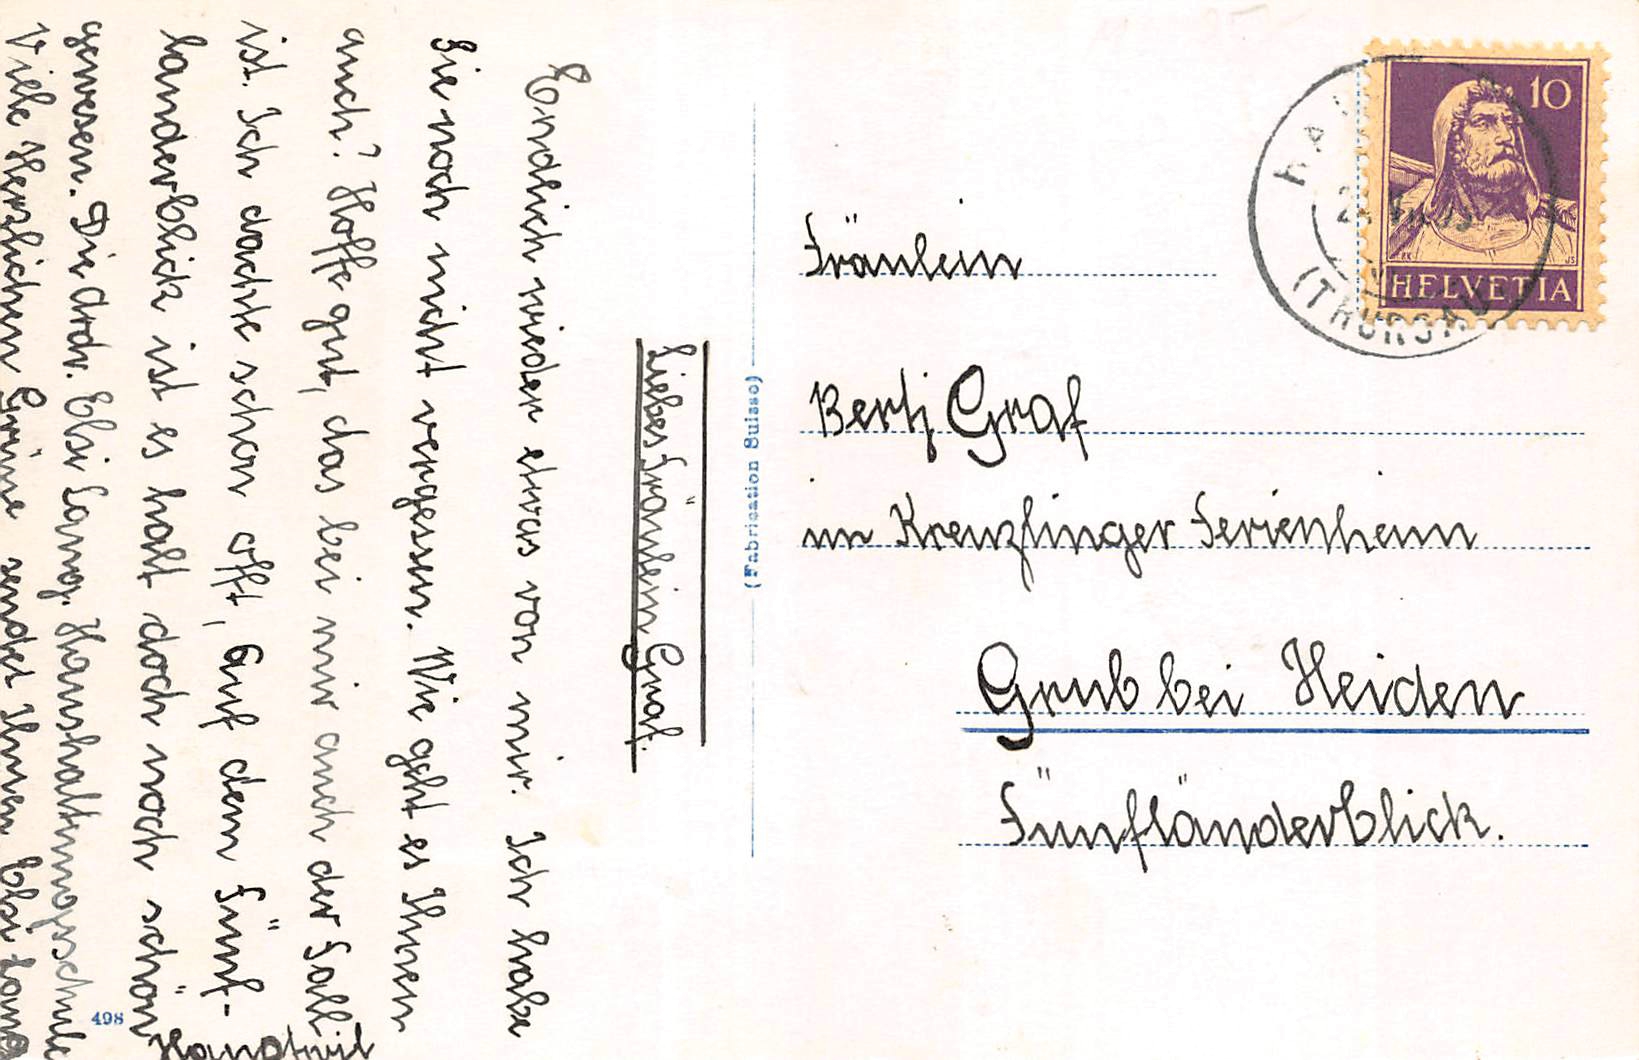 Liebes Fräulein Graf.
Endlich wieder etwas von mir. Ich habe
Sie noch nicht vergessen. Wie geht es Ihnen
auch? Hoffe gut, das bei mir auch der Fall
ist. Ich dachte schon oft, auf dem Fünf-
länderblick ist es halt doch noch schön
gewesen. Die Adr. Elsi Lang. Haushaltungsschule
Hauptwil
Viele herzlichen Grüsse sendet Ihnen Elsi Lang
498
(Fabrication Suisse)
10
HELVETIA
(THURGAU)
Fräulein
Berti Graf
im Kreuzlinger Ferienheim
Grub bei Heiden
Fünfländerblick.